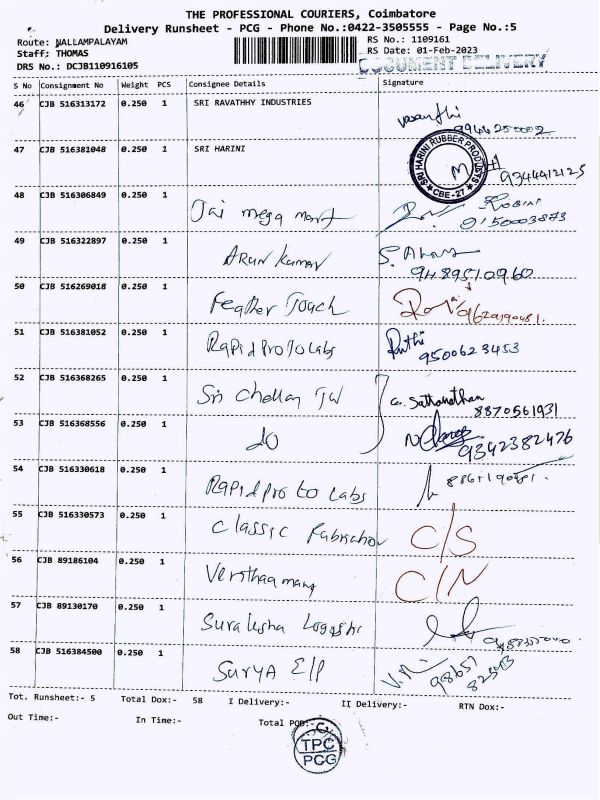 THE PROFESSIONAL COURIERS, Coimbatore
Delivery Runsheet - PCG - Phone No.:0422-3505555 - Page No.:5
Route: NALLAMPALAYAM
RS No.: 1109161
Staff: THOMAS
RS Date: 01-Feb-2023
DRS No.: DCJB110916105
DOCUMENT DELIVERY
S No Consignment No Weight PCS Consignee Details Signature
46 CJB 516313172 0.250 1 SRI RAVATHHY INDUSTRIES
vasanthi
9944250002
47 CJB 516381048 0.250 1 SRI HARINI
SRI HARINI RUBBER PRODUCTS
* CBE-27 *
9344412125
48 CJB 516306849 0.250 1 Jai mega mart
Robini
9150003873
49 CJB 516322897 0.250 1 Arun Kumar
9489510960
50 CJB 516269018 0.250 1 Feather Touch
51 CJB 516381052 0.250 1 Rapid Proto Labs Ruthi
9500623453
52 CJB 516368265 0.250 1 Sri Chellam
G. Sathanathan
8870561931
53 CJB 516368556 0.250 1 do
9342382476
54 CJB 516330618 0.250 1 Rapid Proto Labs
55 CJB 516330573 0.250 1 Classic Fabricator C/S
56 CJB 89186104 0.250 1 C/N
57 CJB 89130170 0.250 1
58 CJB 516384500 0.250 1 Surya E/P V.M
98657
Tot. Runsheet:- 5 Total Dox:- 58 I Delivery:- II Delivery:- RTN Dox:-
Out Time:- In Time:- Total POD:-
TPC
PCG